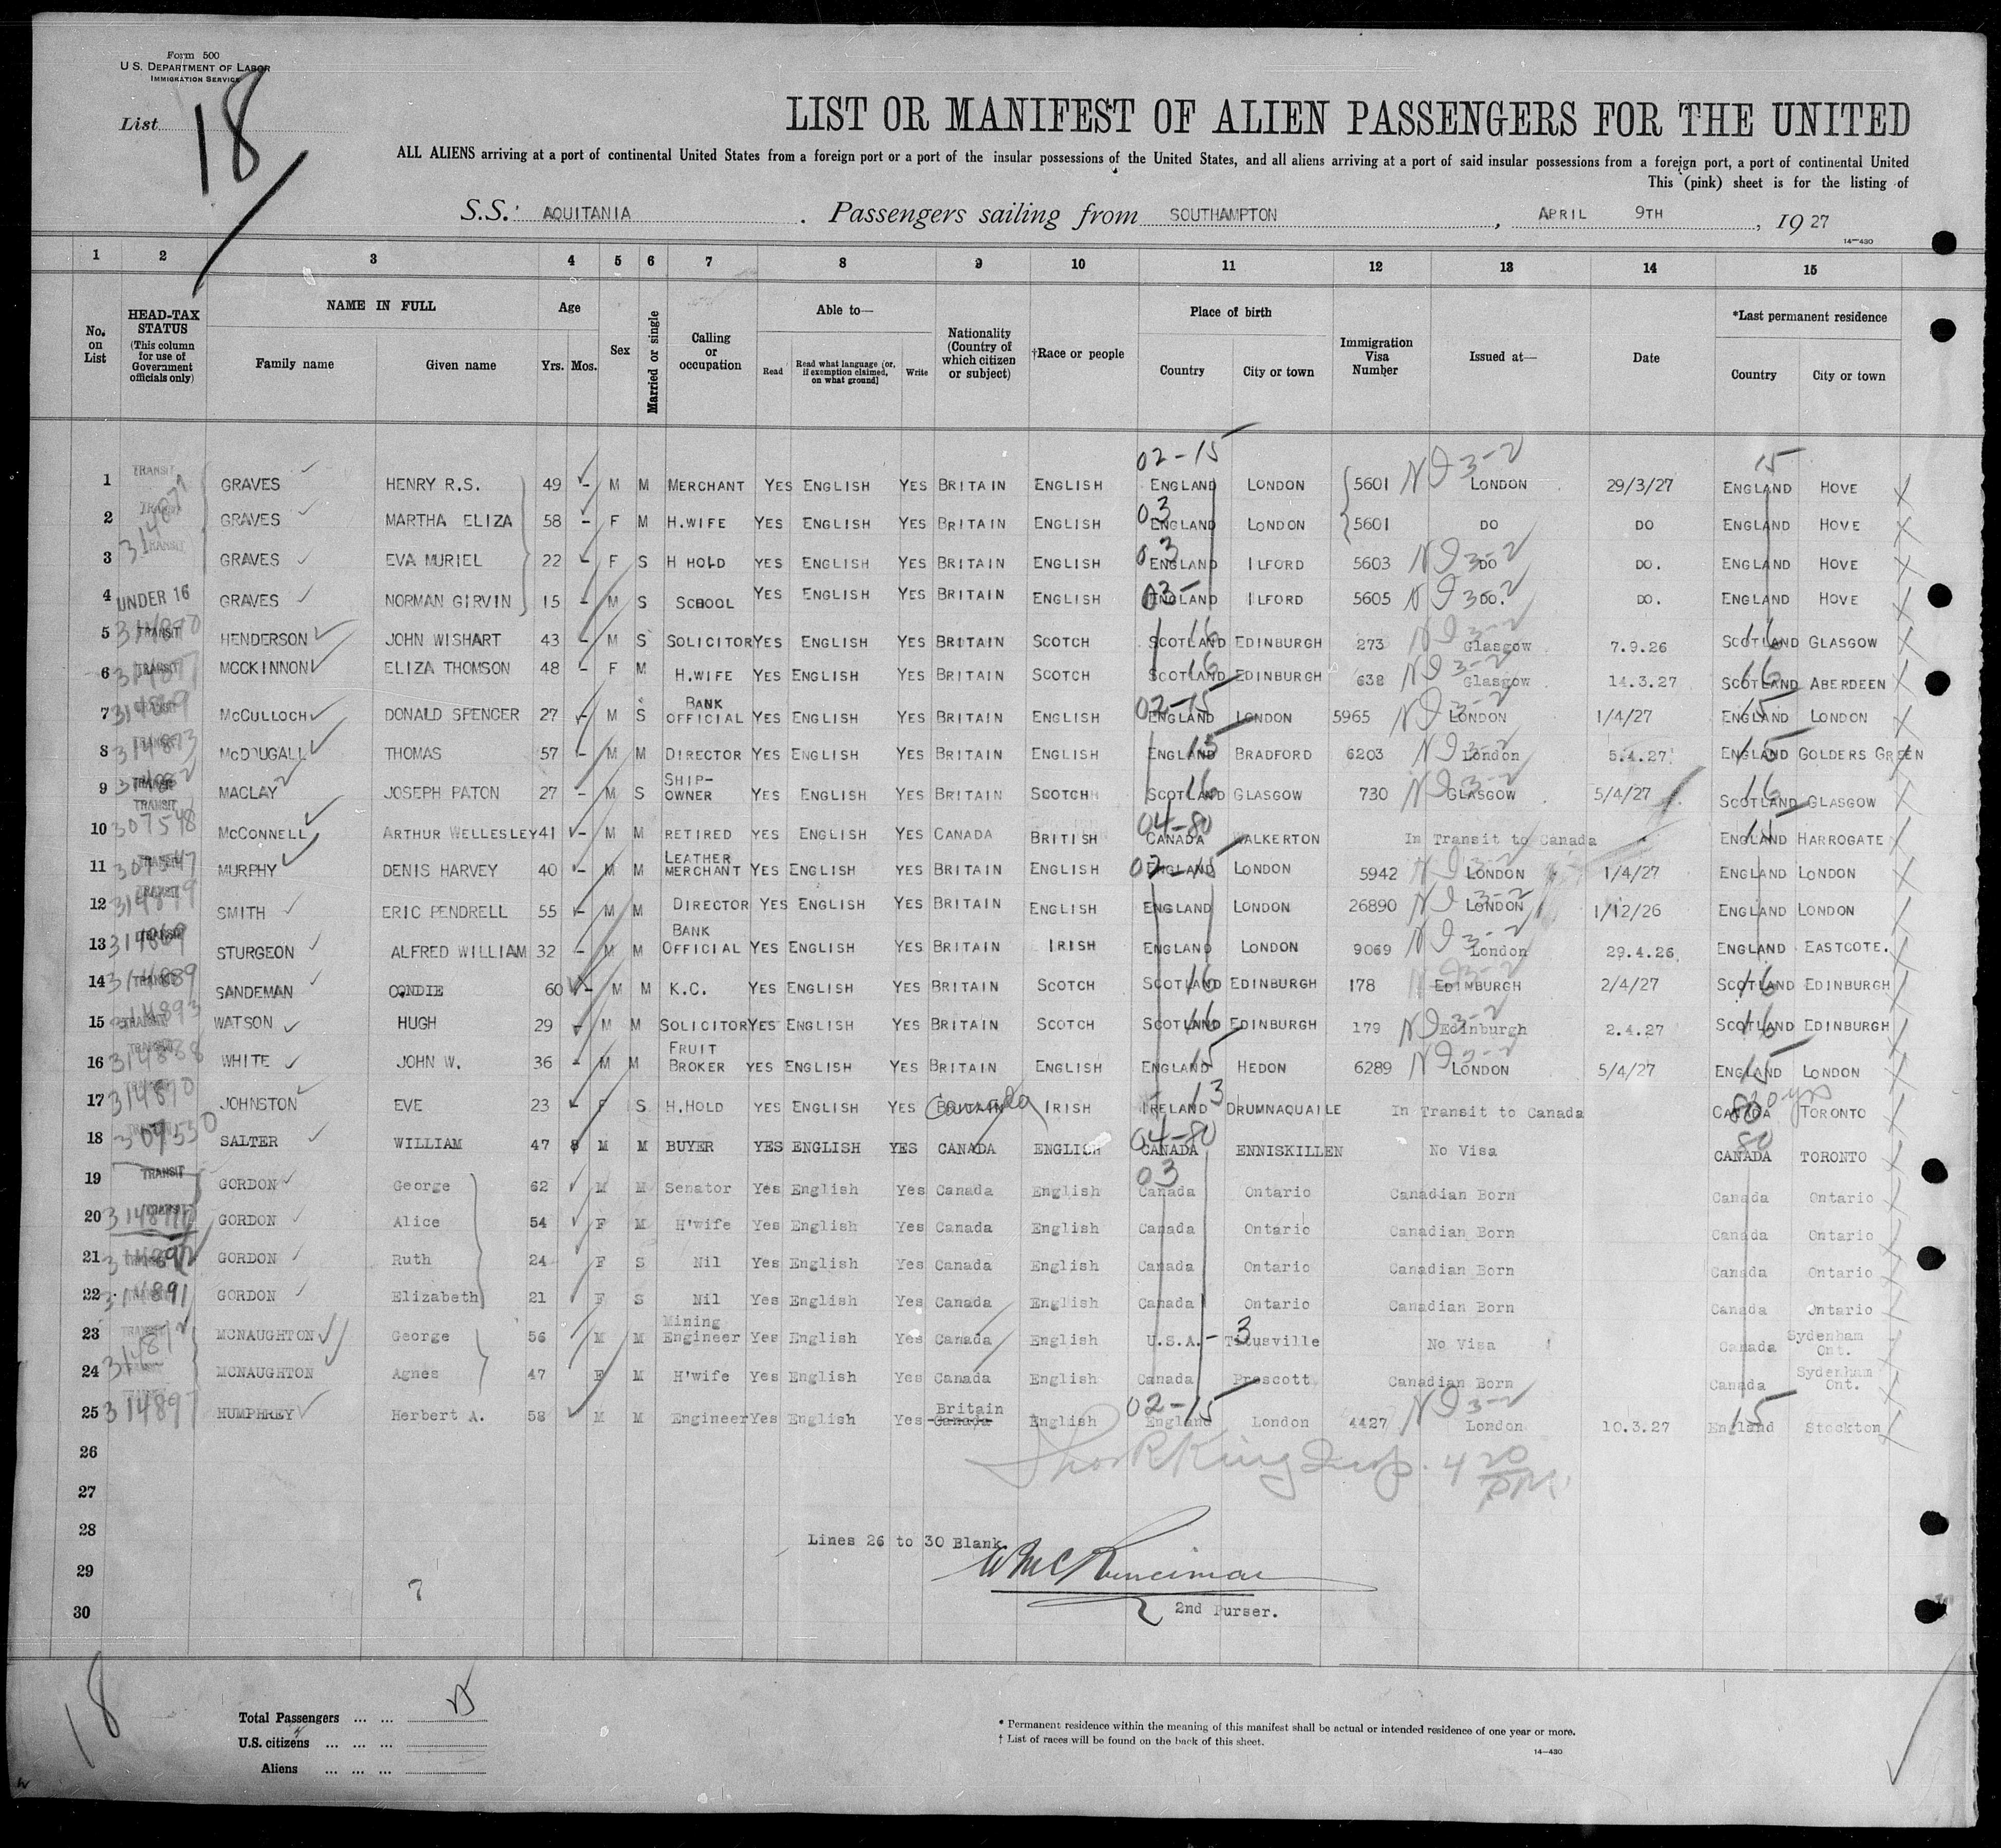 Form 500
U.S. DEPARTMENT OF LABOR
IMMIGRATION SERVICE
List 18
LIST OR MANIFEST OF ALIEN PASSENGERS FOR THE UNITED
ALL ALIENS arriving at a port of continental United States from a foreign port or a port of the insular possessions of the United States, and all aliens arriving at a port of said insular possessions from a foreign port, a port of continental United
This (pink) sheet is for the listing of
S.S. AQUITANIA . Passengers sailing from SOUTHAMPTON , APRIL 9TH , 19 27
14-430
1 2 3 4 5 6 7 8 9 10 11 12 13 14 15
No. on List
HEAD-TAX STATUS (This column for use of Government officials only)
NAME IN FULL
Family name
Given name
Age
Yrs. Mos.
Sex
Married or single
Calling or occupation
Able to—
Read
Read what language [or, if exemption claimed, on what ground]
Write
Nationality (Country of which citizen or subject)
†Race or people
Place of birth
Country
City or town
Immigration Visa Number
Issued at—
Date
*Last permanent residence
Country
City or town
02-15 NI 3-2 15
1 TRANSIT GRAVES HENRY R.S. 49 - M M MERCHANT YES ENGLISH YES BRITAIN ENGLISH ENGLAND LONDON 5601 LONDON 29/3/27 ENGLAND HOVE
2 GRAVES MARTHA ELIZA 58 - F M H.WIFE YES ENGLISH YES BRITAIN ENGLISH 03 ENGLAND LONDON 5601 DO DO ENGLAND HOVE
3 TRANSIT GRAVES EVA MURIEL 22 - F S H HOLD YES ENGLISH YES BRITAIN ENGLISH 03 ENGLAND ILFORD 5603 NI 3-2 DO DO. ENGLAND HOVE
4 UNDER 16 GRAVES NORMAN GIRVIN 15 - M S SCHOOL YES ENGLISH YES BRITAIN ENGLISH 03 ENGLAND ILFORD 5605 DO. DO. ENGLAND HOVE
5 TRANSIT HENDERSON JOHN WISHART 43 - M S SOLICITOR YES ENGLISH YES BRITAIN SCOTCH SCOTLAND 16 EDINBURGH 273 NI 3-2 Glasgow 7.9.26 SCOTLAND 16 GLASGOW
6 TRANSIT MCCKINNON ELIZA THOMSON 48 - F M H.WIFE YES ENGLISH YES BRITAIN SCOTCH SCOTLAND 16 EDINBURGH 638 NI 3-2 Glasgow 14.3.27 SCOTLAND 16 ABERDEEN
7 McCULLOCH DONALD SPENCER 27 - M S BANK OFFICIAL YES ENGLISH YES BRITAIN ENGLISH 02-15 ENGLAND LONDON 5965 NI 3-2 LONDON 1/4/27 15 ENGLAND LONDON
8 314873 McDOUGALL THOMAS 57 - M M DIRECTOR YES ENGLISH YES BRITAIN ENGLISH ENGLAND 15 BRADFORD 6203 NI 3-2 London 5.4.27 ENGLAND 15 GOLDERS GREEN
9 MACLAY JOSEPH PATON 27 - M S SHIP-OWNER YES ENGLISH YES BRITAIN SCOTCH SCOTLAND 16 GLASGOW 730 NI 3-2 GLASGOW 5/4/27 SCOTLAND 16 GLASGOW
10 TRANSIT 307548 McCONNELL ARTHUR WELLESLEY 41 - M M RETIRED YES ENGLISH YES CANADA BRITISH 04-80 CANADA WALKERTON In Transit to Canada - ENGLAND 15 HARROGATE
11 307547 MURPHY DENIS HARVEY 40 - M M LEATHER MERCHANT YES ENGLISH YES BRITAIN ENGLISH 02-15 ENGLAND LONDON 5942 NI 3-2 LONDON 1/4/27 ENGLAND LONDON
12 314879 SMITH ERIC PENDRELL 55 - M M DIRECTOR YES ENGLISH YES BRITAIN ENGLISH ENGLAND LONDON 26890 NI 3-2 LONDON 1/12/26 ENGLAND LONDON
13 314869 STURGEON ALFRED WILLIAM 32 - M M BANK OFFICIAL YES ENGLISH YES BRITAIN IRISH ENGLAND LONDON 9069 NI 3-2 London 29.4.26 ENGLAND EASTCOTE.
14 314889 SANDEMAN CONDIE 60 - M M K.C. YES ENGLISH YES BRITAIN SCOTCH SCOTLAND 16 EDINBURGH 178 NI 3-2 EDINBURGH 2/4/27 SCOTLAND 16 EDINBURGH
15 314893 TRANSIT WATSON HUGH 29 - M M SOLICITOR YES ENGLISH YES BRITAIN SCOTCH SCOTLAND 16 EDINBURGH 179 NI 3-2 Edinburgh 2.4.27 SCOTLAND 16 EDINBURGH
16 314838 WHITE JOHN W. 36 - M M FRUIT BROKER YES ENGLISH YES BRITAIN ENGLISH ENGLAND 15 HEDON 6289 NI 3-2 LONDON 5/4/27 ENGLAND 15 LONDON
17 314870 JOHNSTON EVE 23 - F S H.HOLD YES ENGLISH YES BRITAIN Canada IRISH IRELAND 13 DRUMNAQUAILE In Transit to Canada CANADA 80 TORONTO
18 SALTER WILLIAM 47 8 M M BUYER YES ENGLISH YES CANADA ENGLISH 04-80 CANADA ENNISKILLEN No Visa 80 CANADA TORONTO
19 TRANSIT GORDON George 62 M M Senator Yes English Yes Canada English 03 Canada Ontario Canadian Born Canada Ontario
20 GORDON Alice 54 F M H'wife Yes English Yes Canada English Canada Ontario Canadian Born Canada Ontario
21 GORDON Ruth 24 F S Nil Yes English Yes Canada English Canada Ontario Canadian Born Canada Ontario
22 314891 GORDON Elizabeth 21 F S Nil Yes English Yes Canada English Canada Ontario Canadian Born Canada Ontario
23 MCNAUGHTON George 56 M M Mining Engineer Yes English Yes Canada English U.S.A. - 3 Titusville No Visa Canada Sydenham Ont.
24 MCNAUGHTON Agnes 47 F M H'wife Yes English Yes Canada English Canada Prescott Canadian Born Canada Sydenham Ont.
25 314897 HUMPHREY Herbert A. 58 M M Engineer Yes English Yes Britain Canada English 02-15 England London 4427 NI 3-2 London 10.3.27 15 England Stockton
26
27
28
29
30
4 20 PM
Lines 26 to 30 Blank.
2nd Purser.
7
18
Total Passengers ... ...
U.S. citizens ... ... ...
Aliens ... ... ...
* Permanent residence within the meaning of this manifest shall be actual or intended residence of one year or more.
† List of races will be found on the back of this sheet.
14-430